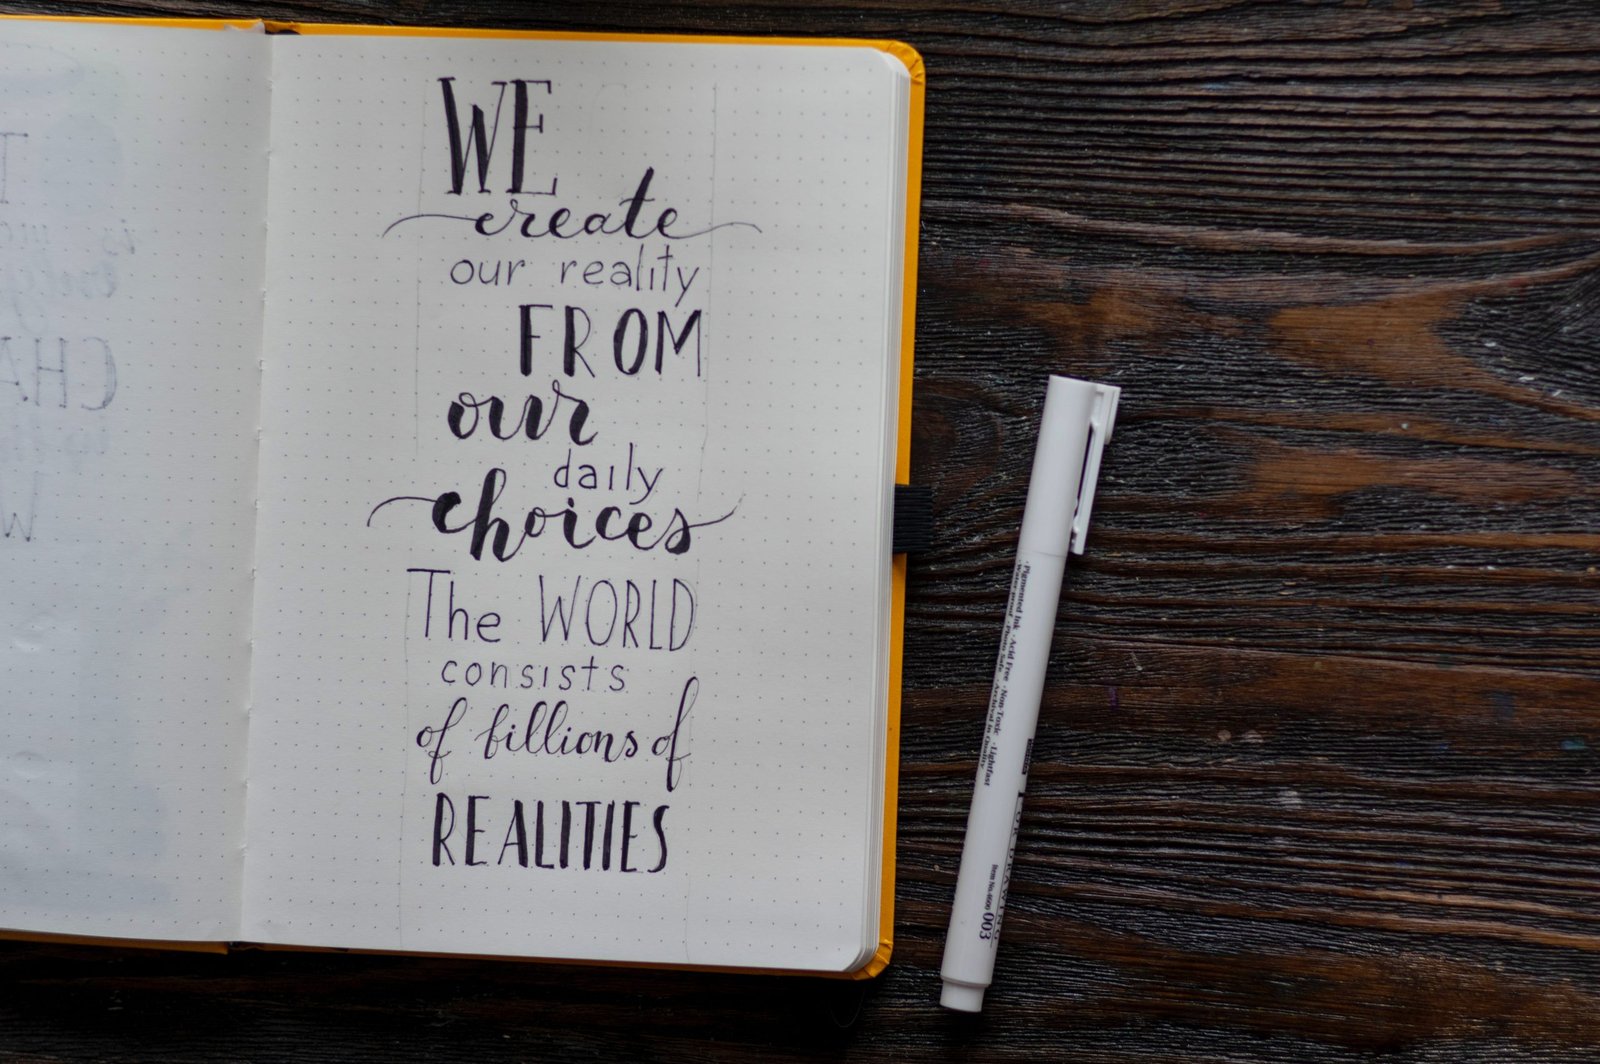 WE
create
our reality
FROM
our
daily
choices
The WORLD
consists
of billions of
REALITIES
· Pigmented Ink · Acid Free · Non-Toxic · Lightfast
Waterproof · Photo Safe · Archival in Quality
DRAWING
003